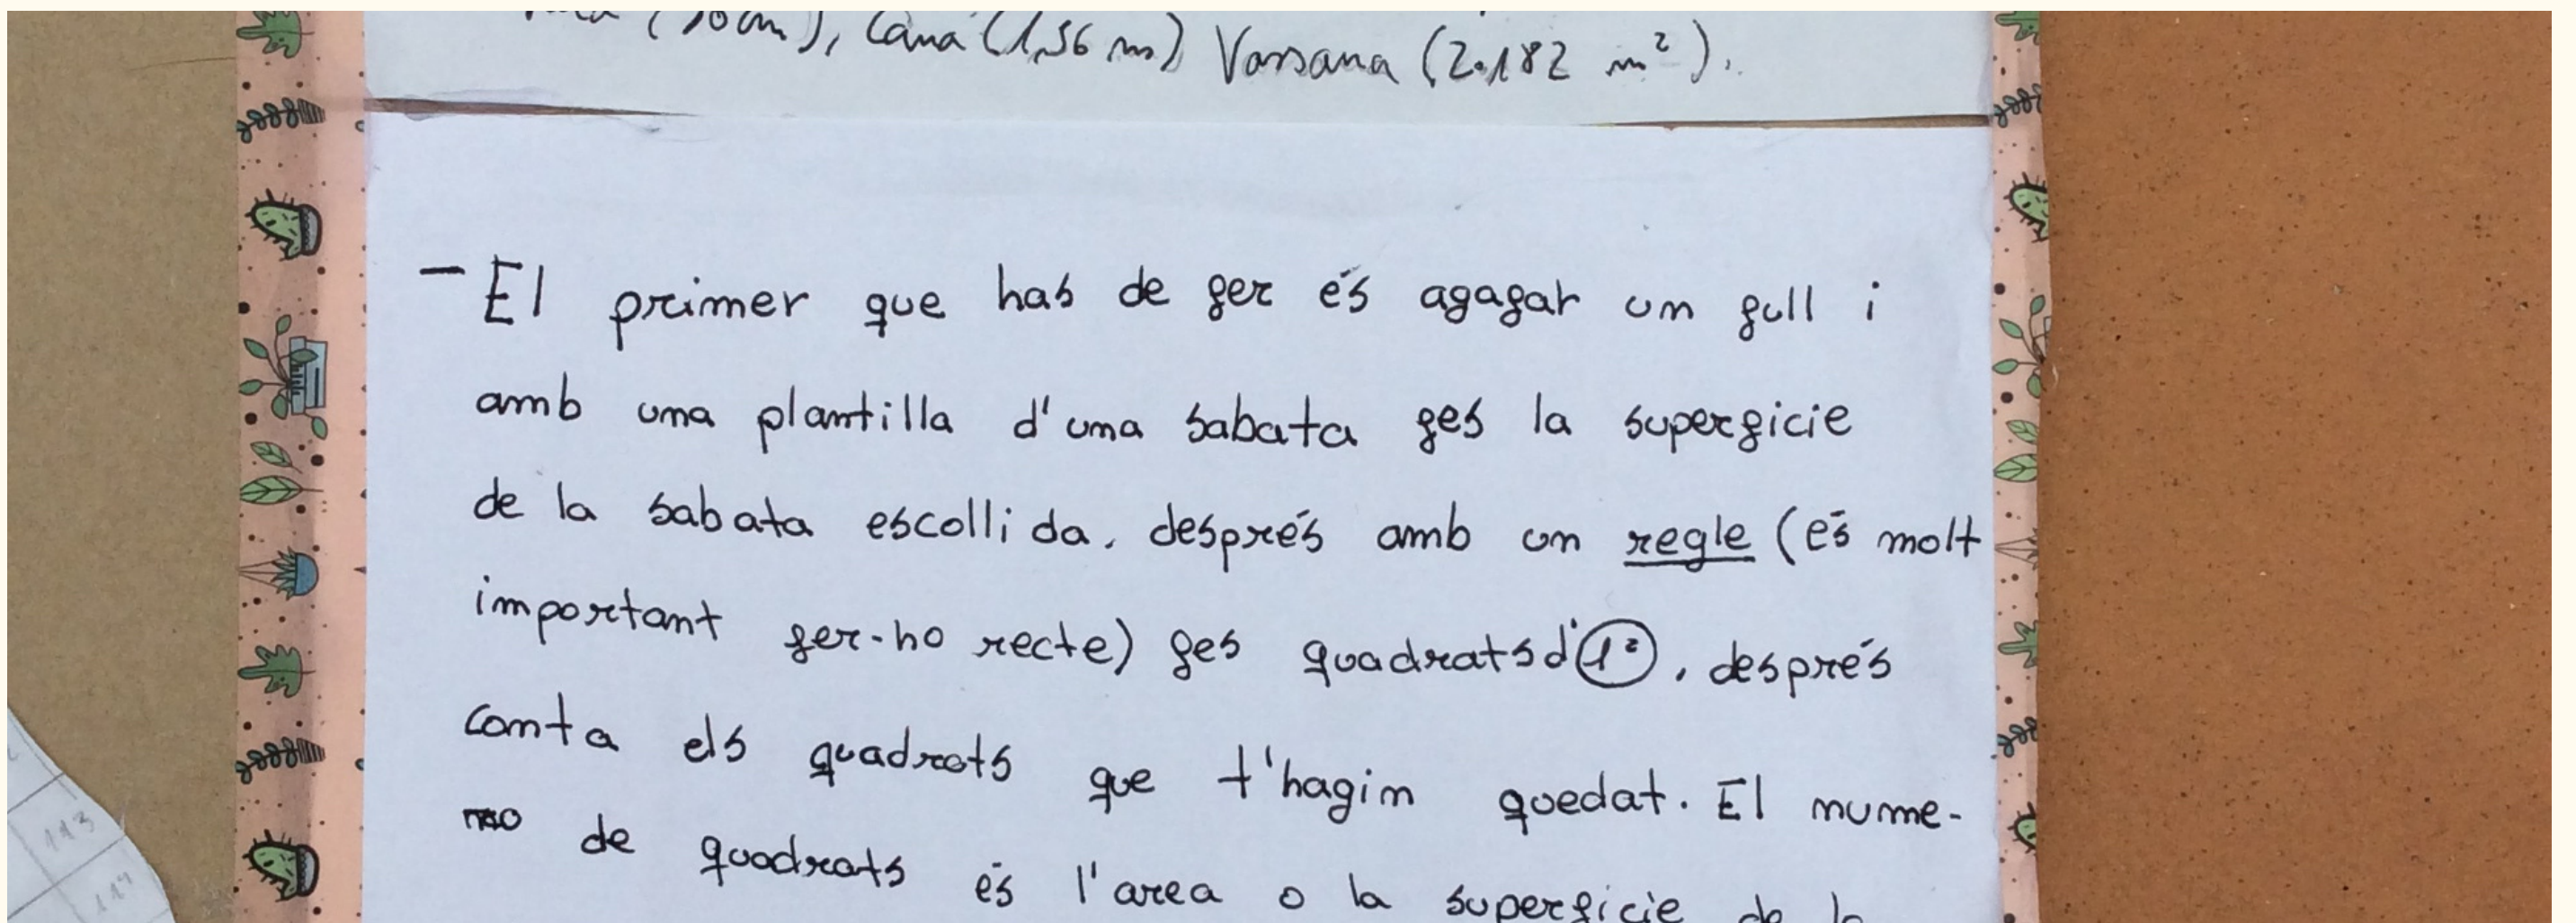 (10cm), Cana (1,56 m) Vassana (2.182 m²).
- El primer que has de fer és agafar un full i
amb una plantilla d'una sabata fes la superficie
de la sabata escollida, després amb un regle (és molt
important fer-ho recte) fes quadrats d'1², després
conta els quadrats que t'hagin quedat. El nume-
ro de quadrats és l'area o la superficie de la
113
114